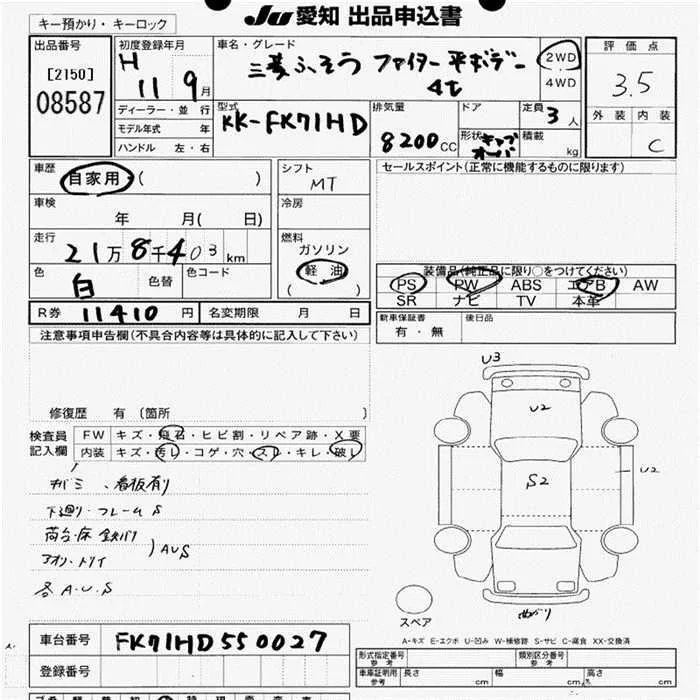 キー預かり・キーロック
JU 愛知 出品申込書
出品番号
[2150]
08587
初度登録年月
H 11 9月
ディーラー・並行
モデル年式 年
ハンドル 左・右
車名・グレード
三菱ふそう ファイター 平ボデー
4t
2WD
4WD
型式
KK-FK71HD
排気量
8200CC
ドア
形状 キャブオーバ
定員
3人
積載
kg
評価点
3.5
外装 内装
C
車歴
自家用 ( )
車検
年 月( 日)
走行
21万8千403km
色
白
色替
色コード
シフト
MT
冷房
燃料
ガソリン
軽油
( )
セールスポイント(正常に機能するものに限ります)
装備品(純正品に限り○をつけてください)
PS PW ABS エアB AW
SR ナビ TV 本革
R券 11410 円
名変期限 月 日
新車保証書
有・無
後日品
注意事項申告欄(不具合内容等は具体的に記入して下さい)
修復歴 有 〔箇所 〕
検査員
記入欄
FW キズ・飛石・ヒビ割・リペア跡・X要
内装 キズ・汚レ・コゲ・穴・スレ・キレ・破レ
看板有り
下廻り・フレーム S
荷台・床 鉄バリ
アオリ・トリイ
)AUS
各 A.U.S
U3
U2
S2
U2
曲がり
スペア
A-キズ E-エクボ U-凹み W-補修跡 S-サビ C-腐食 XX-交換済
車台番号 FK71HD550027
登録番号
形式指定番号
参考
類別区分番号
参考
車庫証明用
参考
長さ cm
幅 cm
高さ cm